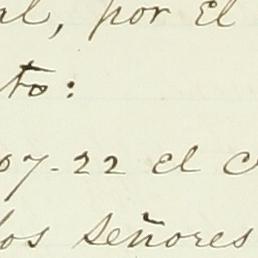 al, por El
to:
07-22 el c
los señores